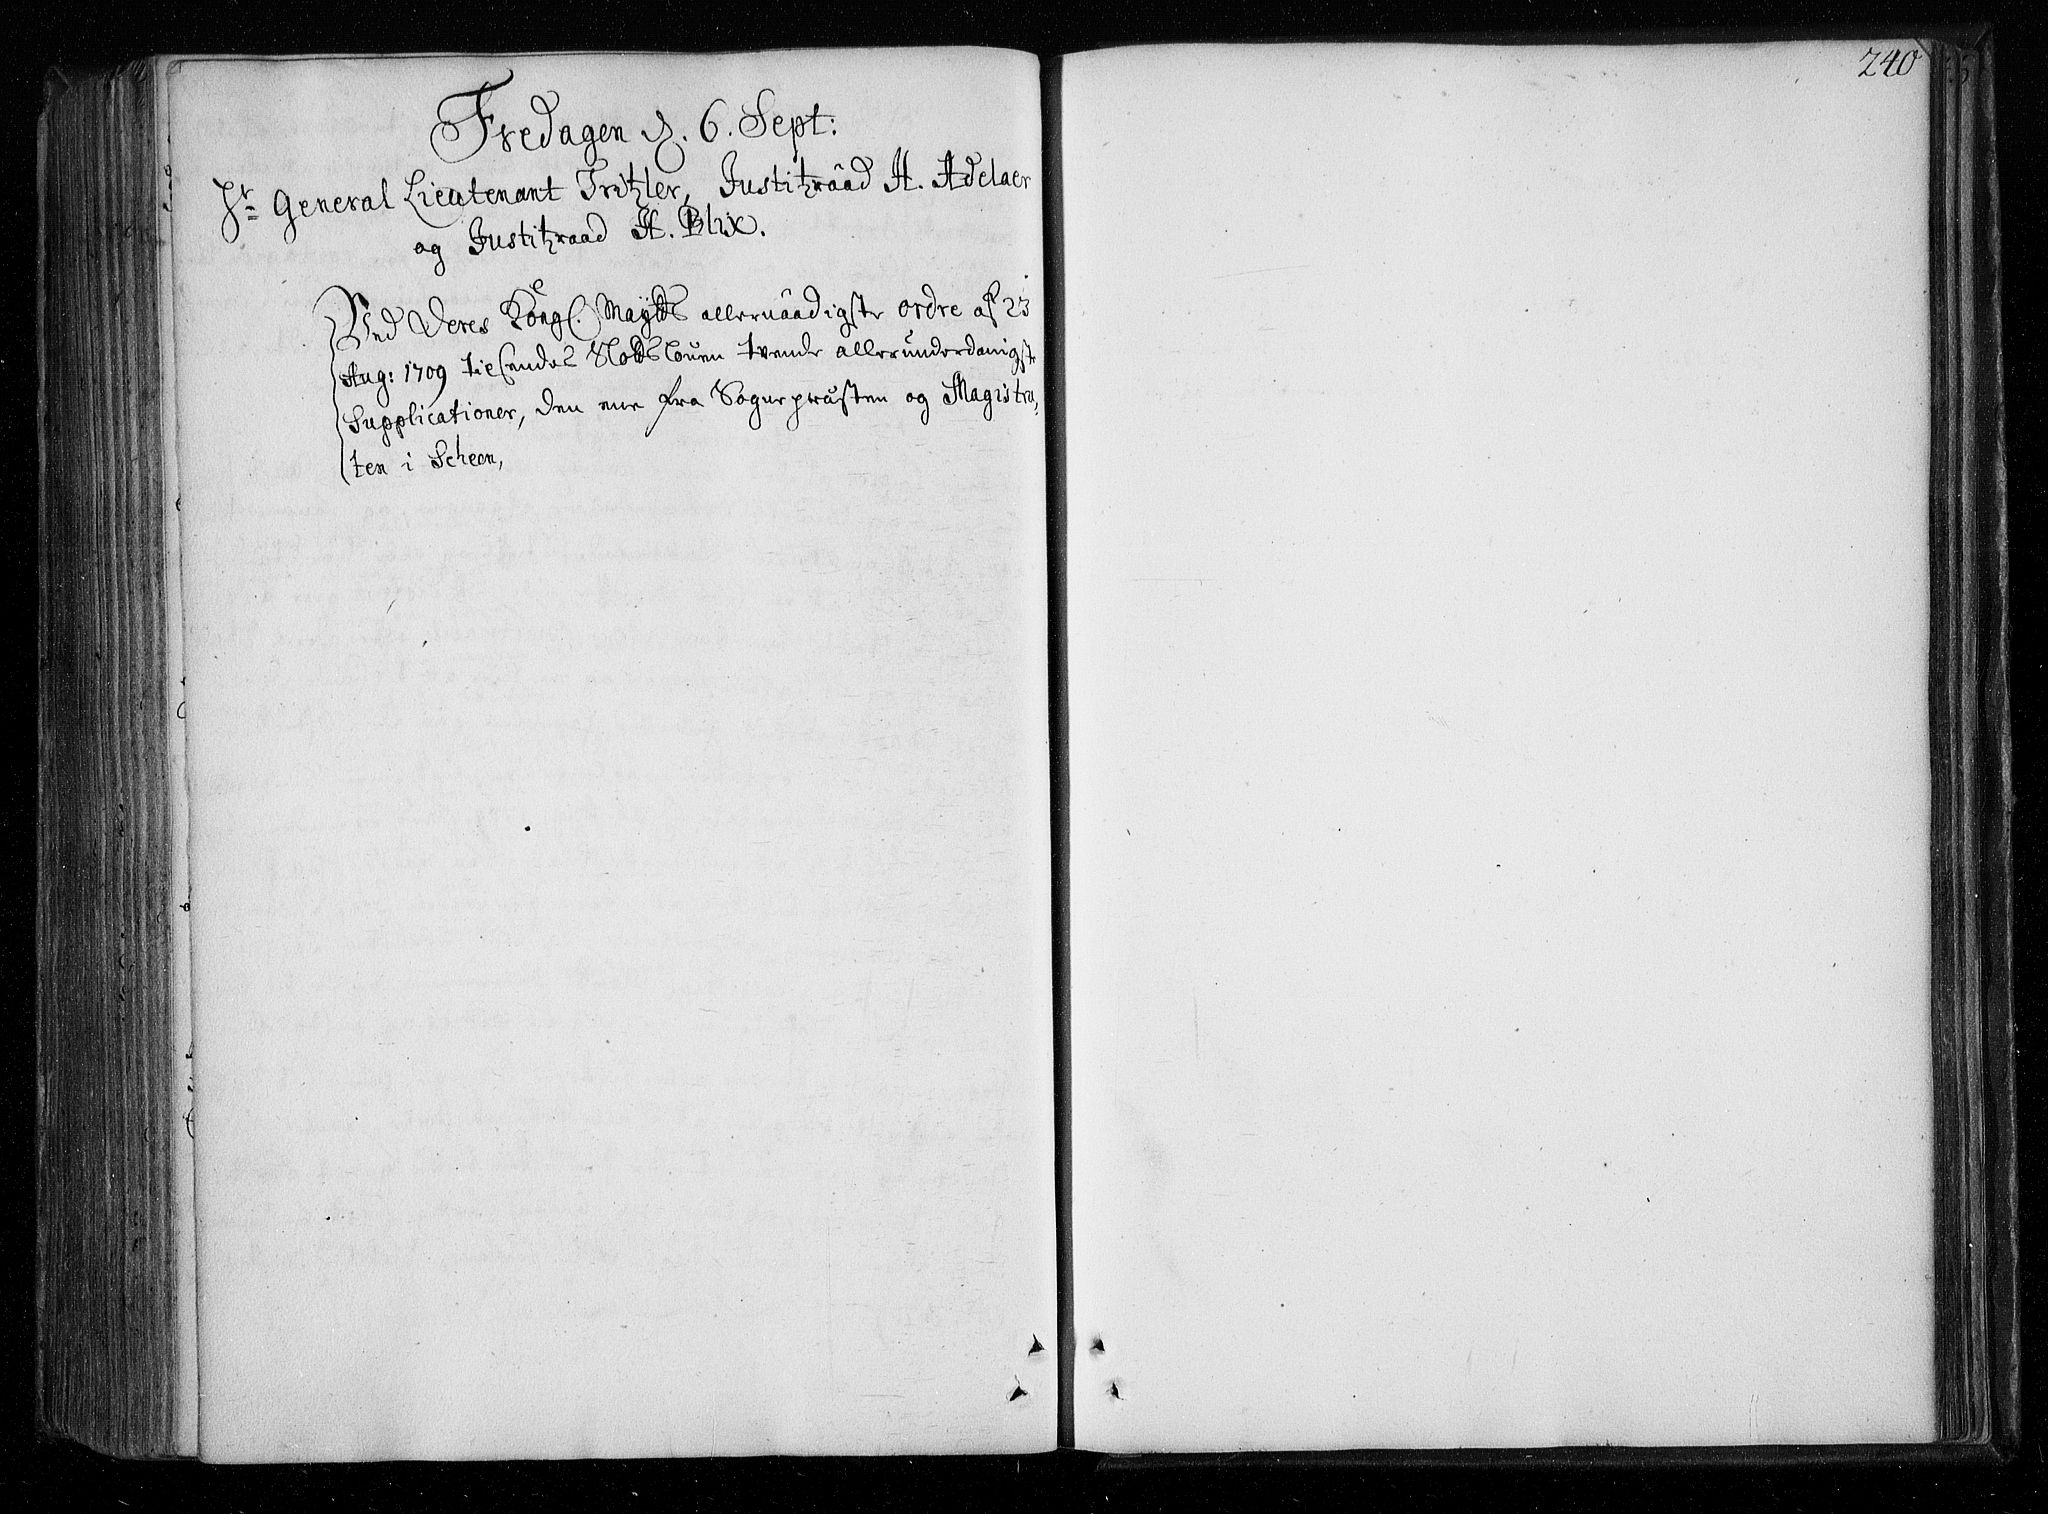 240
Fredagen d. 6. Sept:
Hr General Lieutenant Tritzler, Justitzraad H. Adelaer
og Justitzraad H. Blix.
Ved Deres Kongel. Maytts allernaadigste ordre af 23
Aug: 1709 tilsendes Slottslouen tvende allerunderdanigste
Supplicationer, den ene fra Sognepræsten og Magistra-
ten i Scheen,